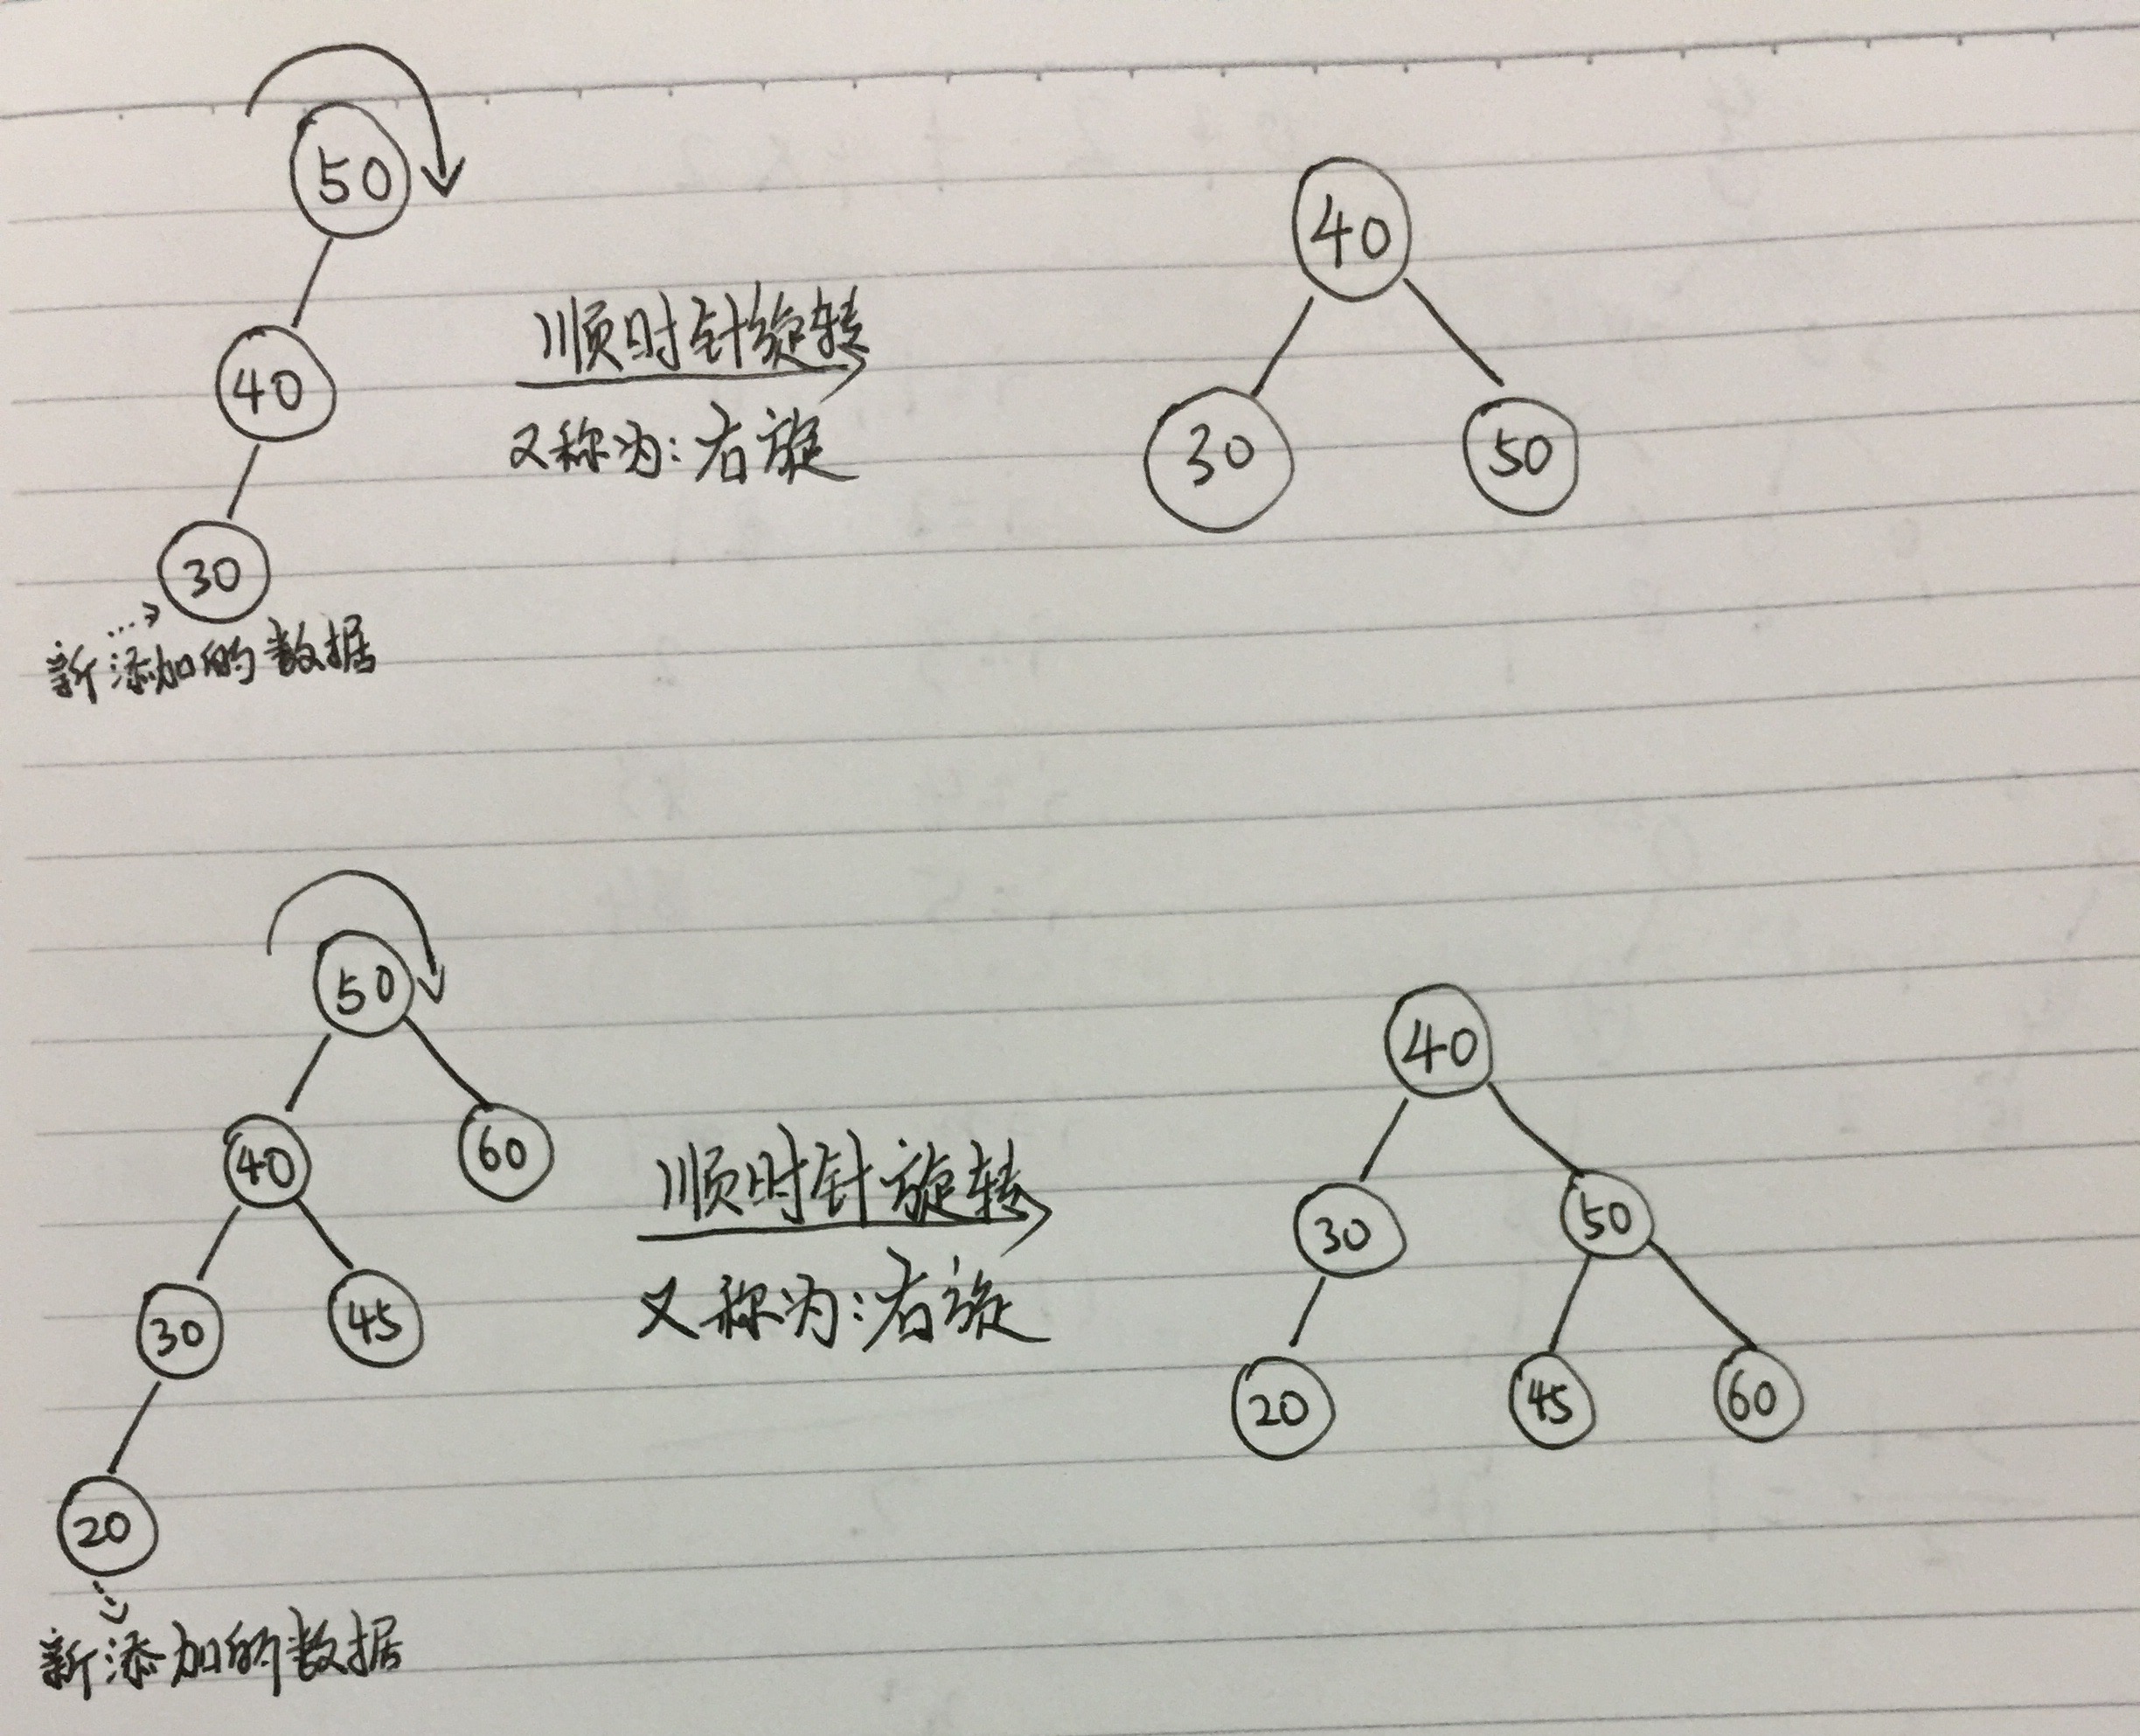 50
40
30
新添加的数据
顺时针旋转
又称为:右旋
40
30 50
50
40 60
30 45
20
新添加的数据
顺时针旋转
又称为:右旋
40
30 50
20 45 60